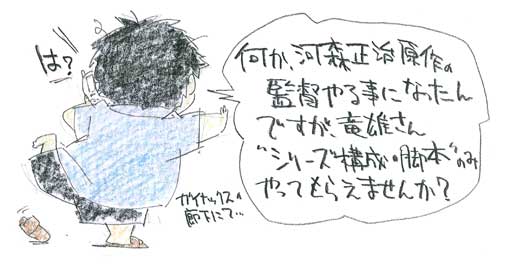 は?
何か、河森正治原作の
監督やる事になったん
ですが、竜雄さん
"シリーズ構成・脚本"のみ
やってもらえませんか?
ガイナックスの
廊下にて…